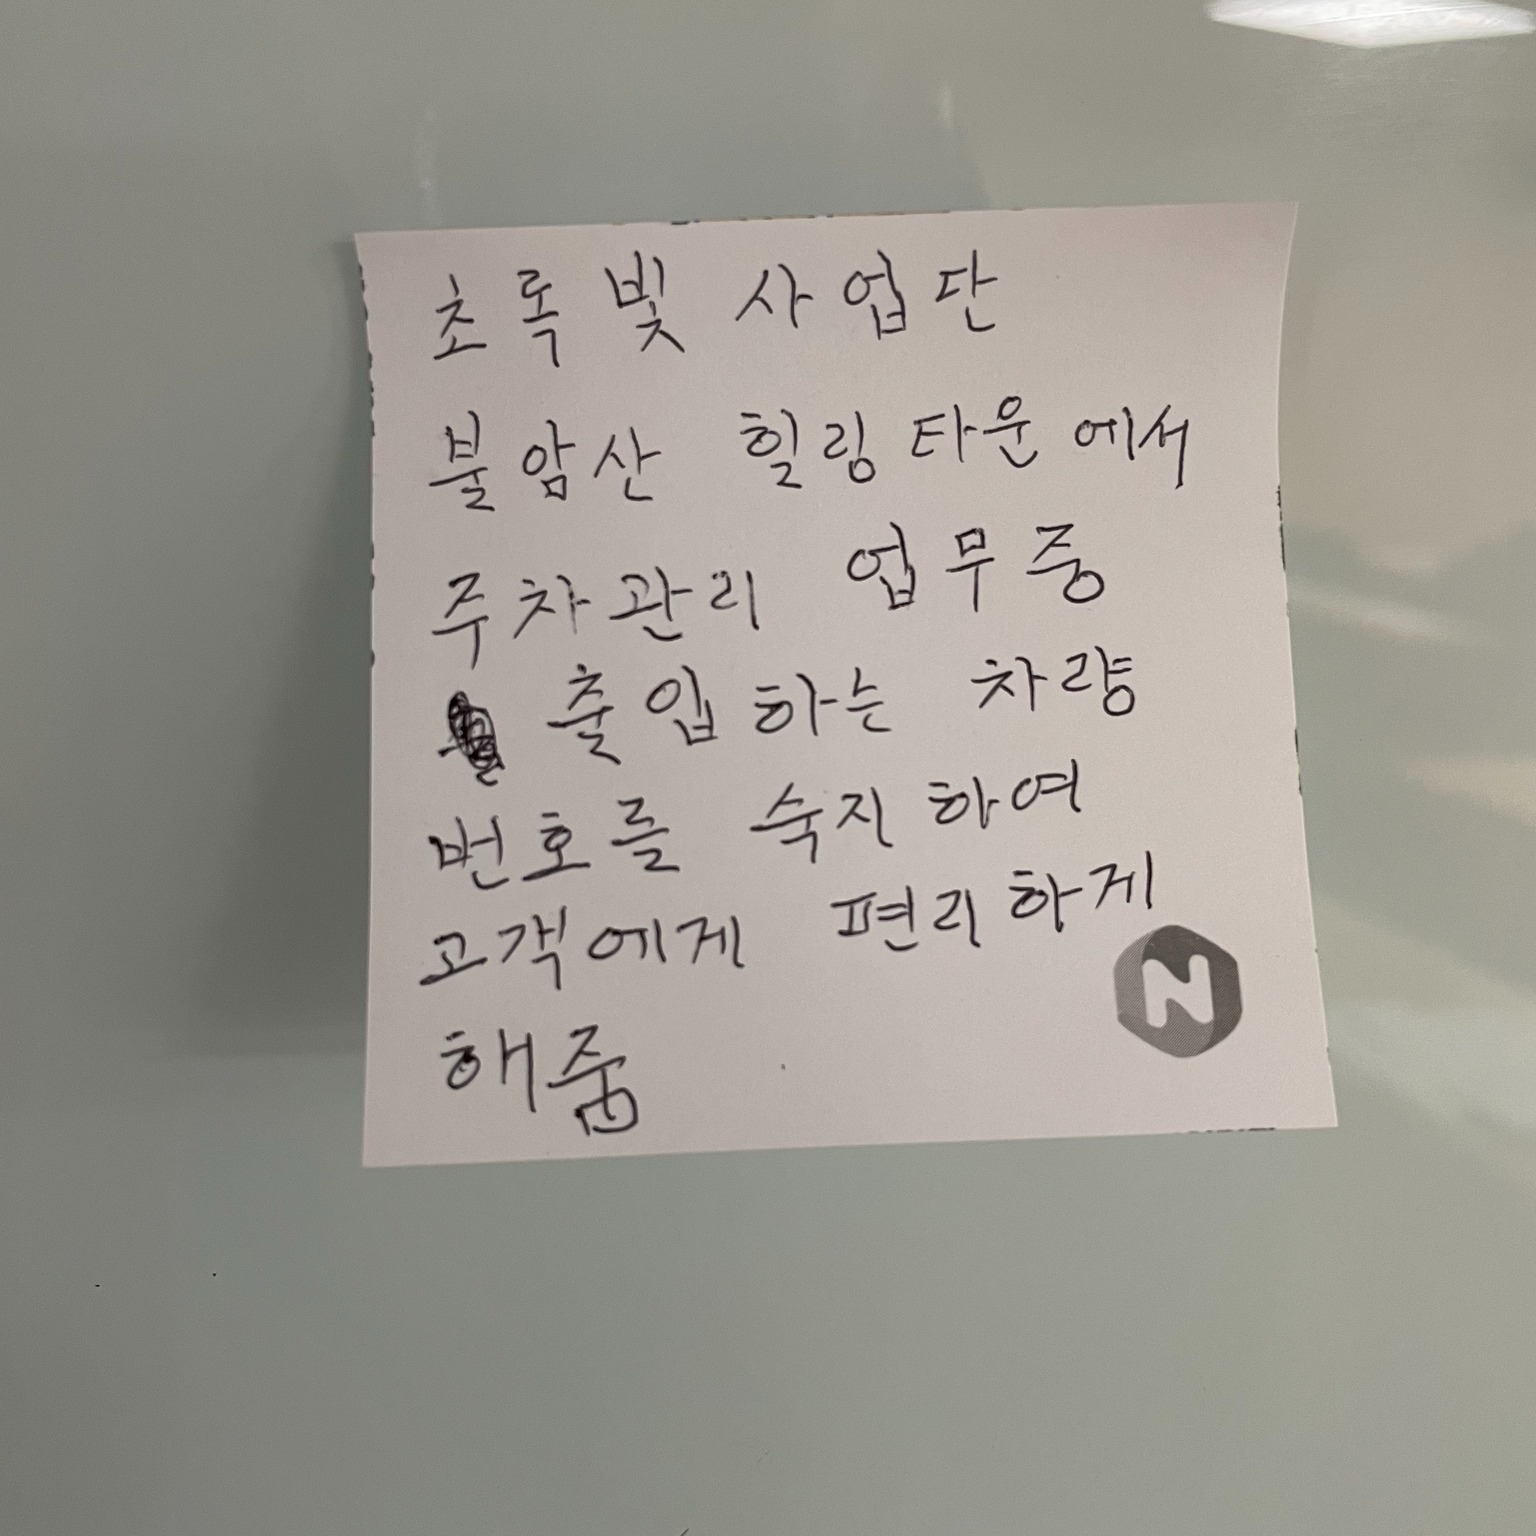 초록빛 사업단
불암산 힐링타운에서
주차관리 업무중
출입하는 차량
번호를 숙지하여
고객에게 편리하게
해줌
N